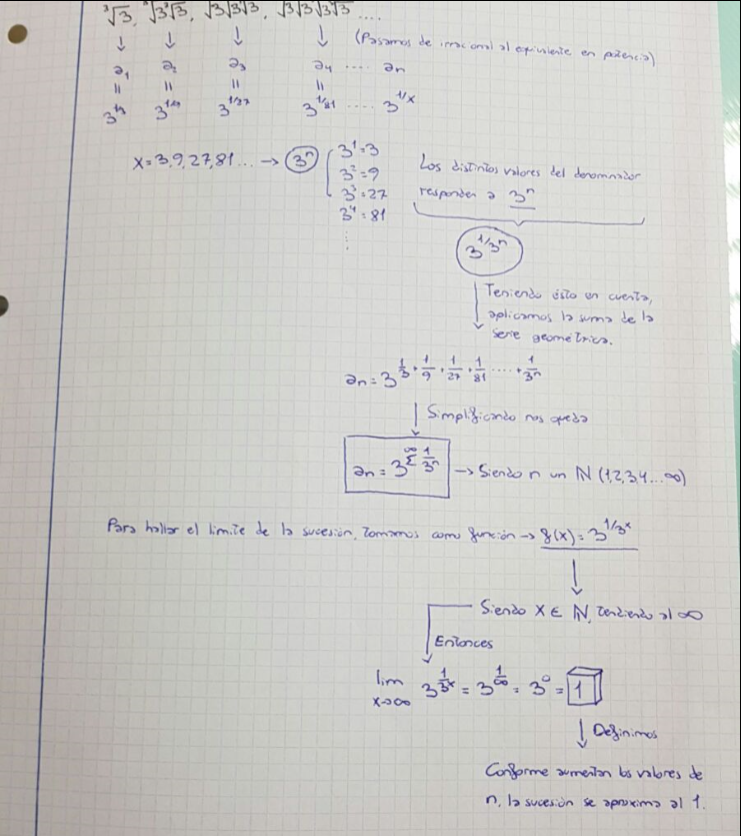 ³√3, ³√3³√3, √3√3√3, √3√3√3√3 ....
↓ ↓ ↓ ↓ (Pasamos de irracional al equivalente en potencia)
a₁ a₂ a₃ a₄ .... aₙ
|| || || ||
3^1/3 3^1/9 3^1/27 3^1/81 ..... 3^1/x
x = 3, 9, 27, 81 ... → 3ⁿ
3¹ = 3
3² = 9
3³ = 27
3⁴ = 81
Los distintos valores del denominador
responden a 3ⁿ
3^1/3ⁿ
Teniendo ésto en cuenta,
aplicamos la suma de la
serie geométrica.
aₙ = 3^(1/3 + 1/9 + 1/27 + 1/81 ..... + 1/3ⁿ)
Simplificando nos queda
aₙ = 3^(∞Σ 1/3ⁿ) → Siendo n un ℕ (1,2,3,4...∞)
Para hallar el límite de la sucesión, tomamos como función → f(x) = 3^1/3ˣ
Siendo x ∈ ℕ, tendiendo al ∞
Entonces
lim x→∞ 3^(1/3ˣ) = 3^(1/∞) = 3⁰ = 1
Definimos
Conforme aumentan los valores de
n, la sucesión se aproxima al 1.